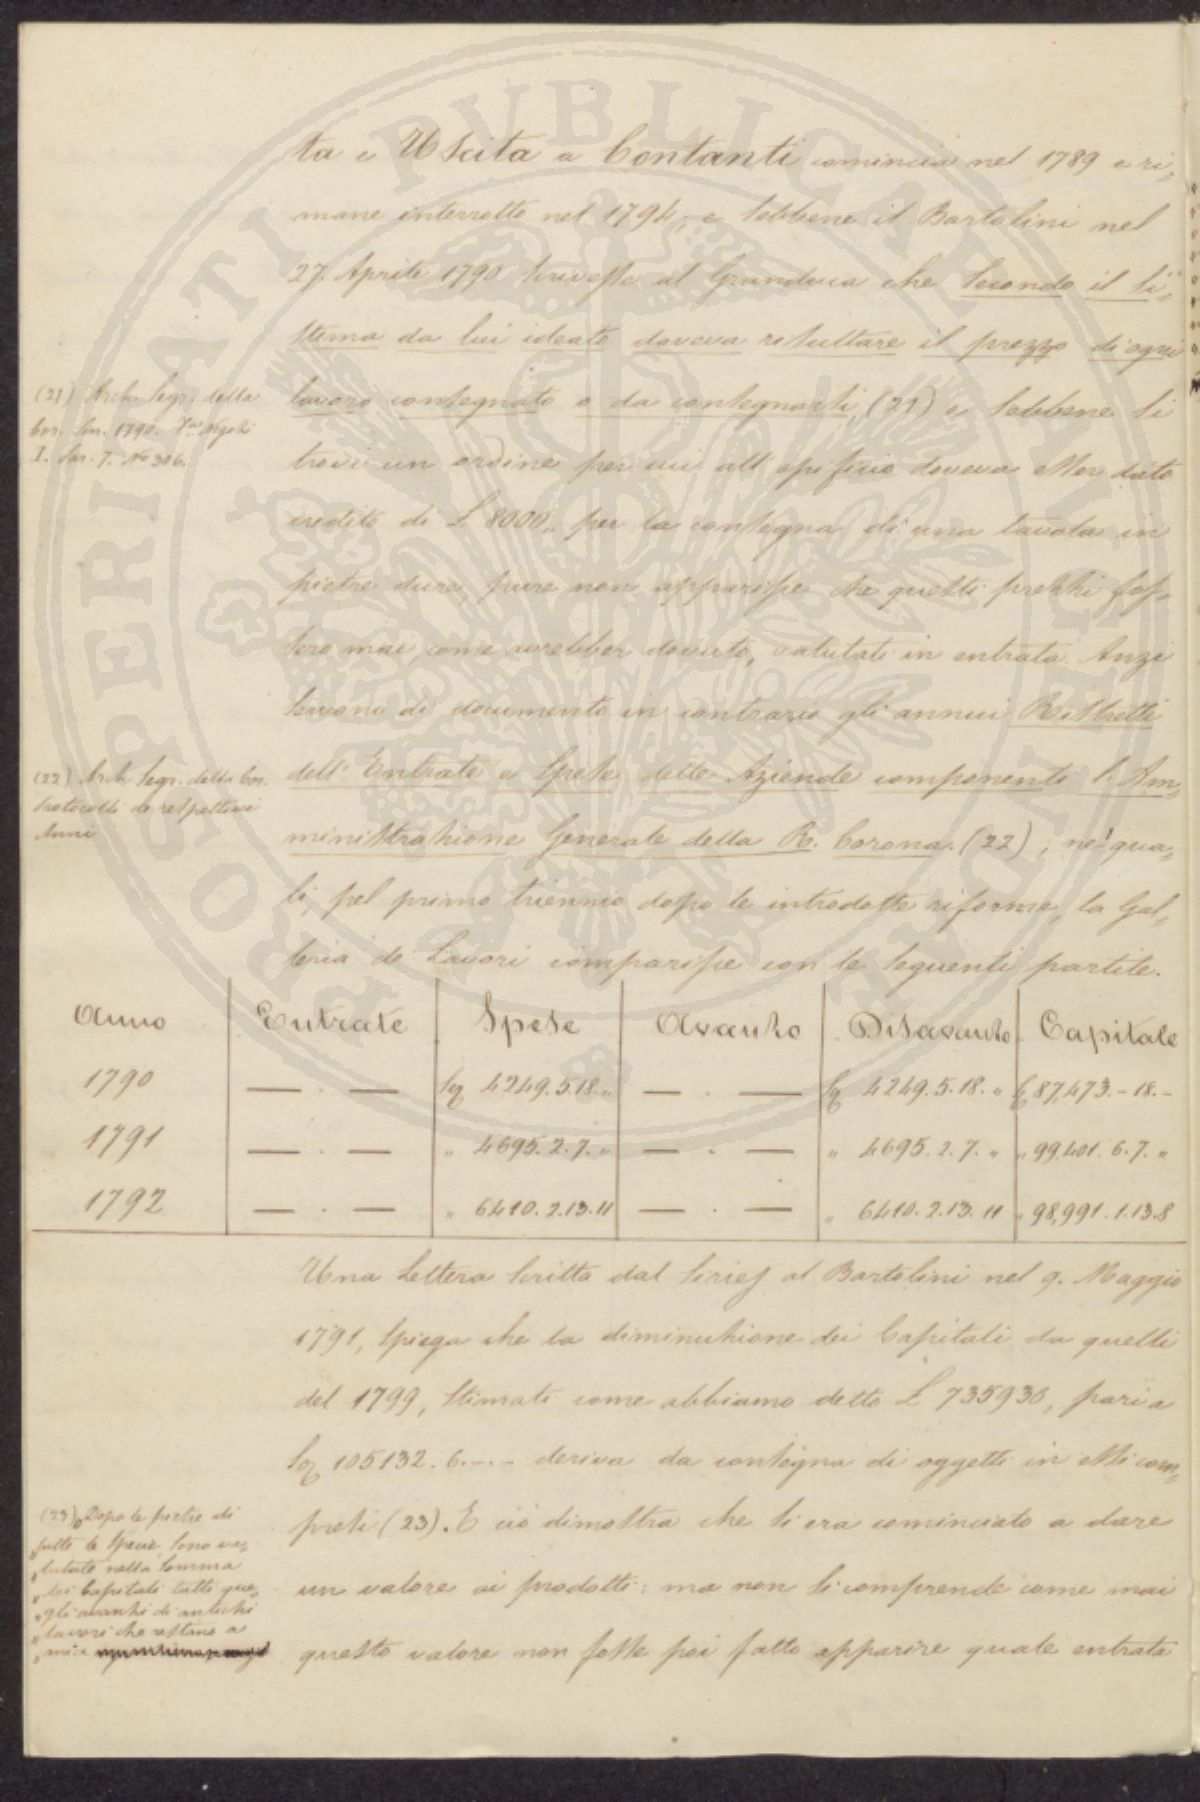 ta e Uscita a Contanti comincia nel 1789 e ri-
mane interrotto nel 1794, e sebbene il Bartolini nel
27. Aprile 1790 scrivesse al Granduca che secondo il si-
stema da lui ideato doveva risultare il prezzo di ogni
lavoro consegnato o da consegnarsi, (21) e sebbene si
trovi un ordine per cui all'opificio doveva esser dato
credito di £ 8000,, per la consegna di una tavola in
pietre dure, pure non apparisce che questi prezzi fos-
sero mai, come avrebber dovuto, valutati in entrata. Anzi
servono di documento in contrario gli annui Ristretti
dell'Entrate e Spese delle Aziende componenti l'Am-
ministrazione Generale della R. Corona. (22), ne' qua-
li, pel primo triennio dopo le introdotte riforme, la Gal-
leria de Lavori comparisce con le seguenti partite.
(21) Arch. Segr. della
Cor. An. 1790.
I. Sar. 7. No 306.
(22) Arch. Segr. della Cor.
Protocolli de respettivi
Anni
Anno Entrate Spese Avanzo Disavanzo Capitale
1790 — . — Sq 4249.5.18.„ — . — Sq 4249.5.18.„ Sq 87,473.-18.-
1791 — . — „ 4695.2.7.„ — . — „ 4695.2.7.„ „ 99,401.6.7.„
1792 — . — „ 6410.2.13.11 — . — „ 6410.2.13.11 „ 98,991.1.13.8
Una Lettera scritta dal Siriej al Bartolini nel 9. Maggio
1791, spiega che la diminuzione dei Capitali da quelli
del 1799, stimati come abbiamo detto £ 735930, pari a
Sq 105132.6.-.- deriva da consegna di oggetti in essi com-
presi (23). E ciò dimostra che si era cominciato a dare
un valore ai prodotti: ma non si comprende come mai
questo valore non fosse poi fatto apparire quale entrata
(23) „Dopo le pietre di
„tutte le Specie, sono va-
„lutate nella Somma
„dei Capitali tutti que-
„gli avanzi di antichi
„lavori che restano a
„mia
PROSPERITATI PUBLICAE AUGENDAE